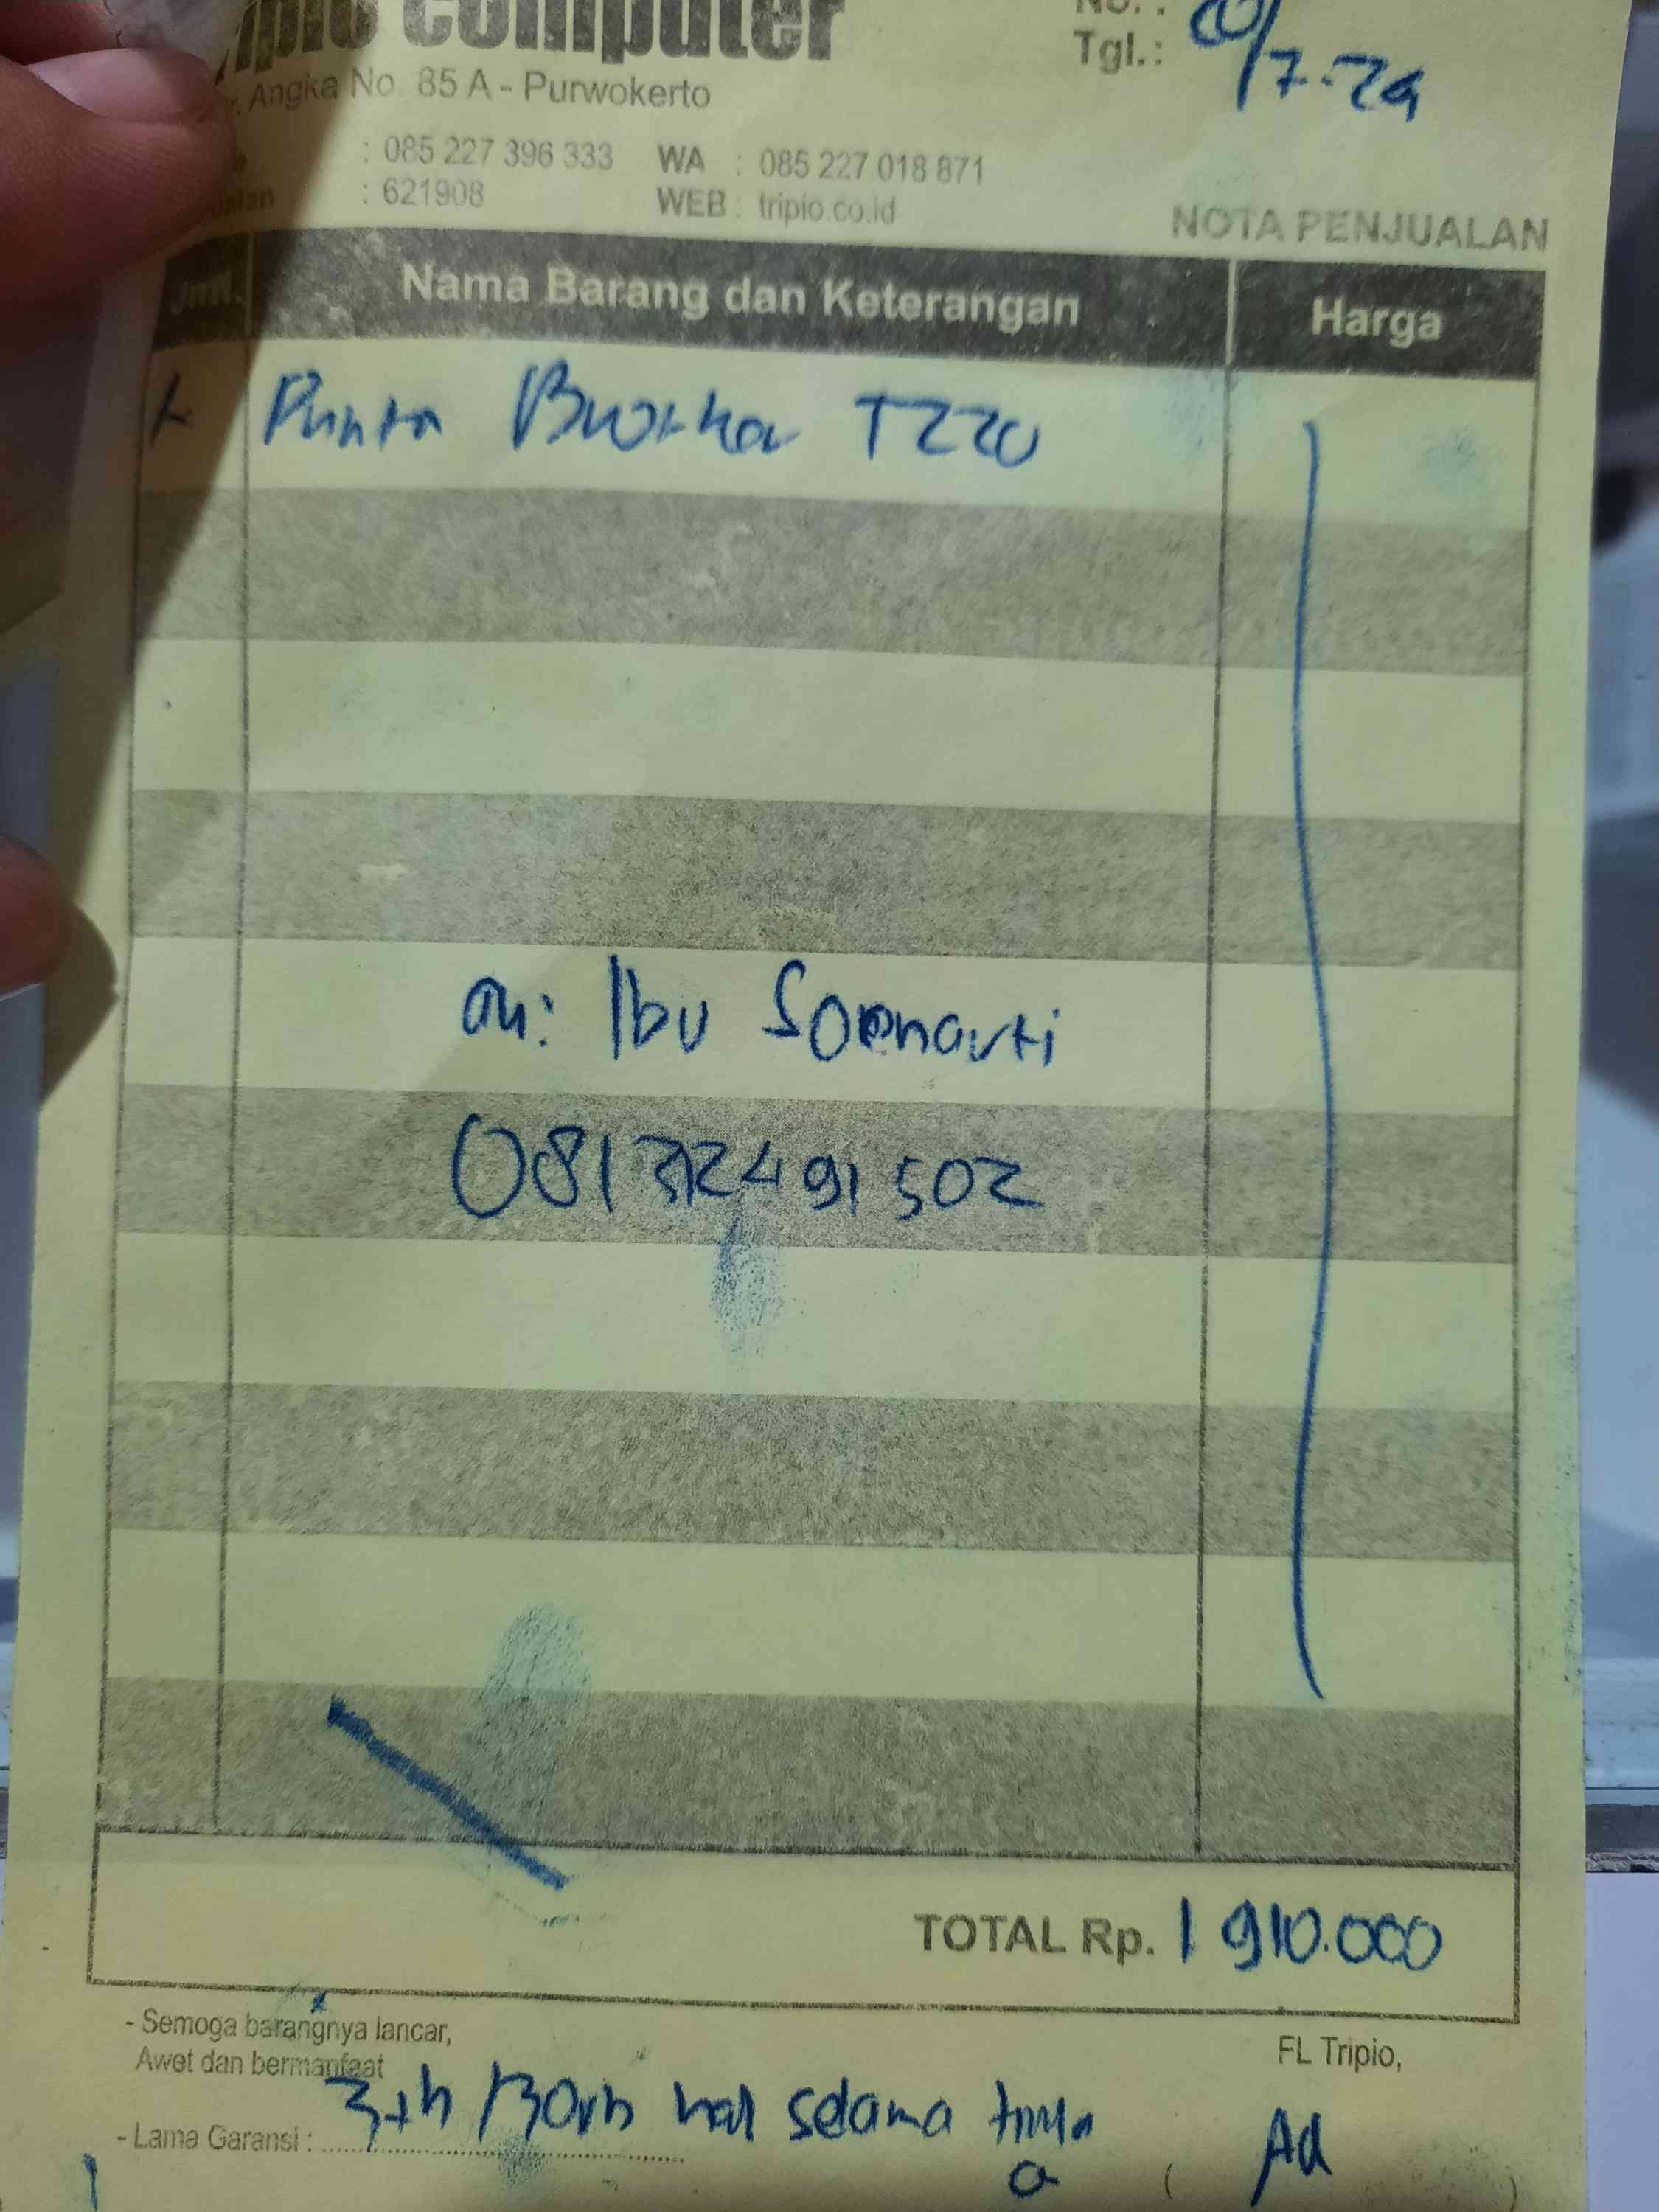 Tripio Computer
Jl. Angka No. 85 A - Purwokerto
No. :
Tgl.: 20/7-24
: 085 227 396 333 WA : 085 227 018 871
: 621908 WEB : tripio.co.id
NOTA PENJUALAN
Jml. Nama Barang dan Keterangan Harga
1 Printer Brother T220
an: Ibu Soenarti
081 312 491 502
TOTAL Rp. 1 910.000
- Semoga barangnya lancar,
Awet dan bermanfaat
FL Tripio,
- Lama Garansi : 3th / 30rb hal selama